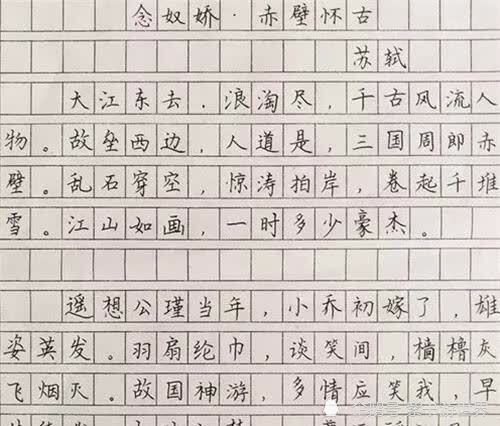 念奴娇·赤壁怀古
苏轼
大江东去,浪淘尽,千古风流人
物。故垒西边,人道是,三国周郎赤
壁。乱石穿空,惊涛拍岸,卷起千堆
雪。江山如画,一时多少豪杰。
遥想公瑾当年,小乔初嫁了,雄
姿英发。羽扇纶巾,谈笑间,樯橹灰
飞烟灭。故国神游,多情应笑我,早